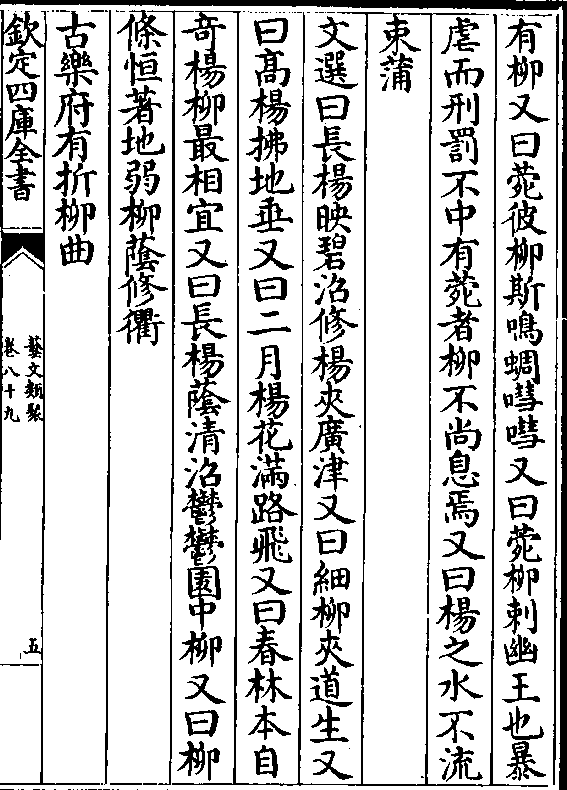 有柳又曰菀彼柳斯鳴蜩嘒嘒又曰菀柳刺幽王也暴
虐而刑罰不中有菀者柳不尚息焉又曰楊之水不流
束蒲
文選曰長楊映碧沼修楊夾廣津又曰細柳夾道生又
曰髙楊拂地垂又曰二月楊花滿路飛又曰春林本自
竒楊柳最相宜又曰長楊蔭清沼鬱鬱園中柳又曰柳
條恒著地弱柳蔭修衢
古樂府有折柳曲
欽定四庫全書
藝文類聚
卷八十九
五